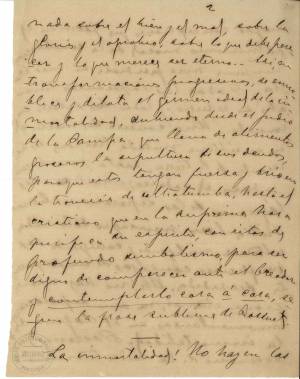 2
nada sobre el bien y el mal, sobre la
gloria y el oprobio, sobre lo que debe pere-
cer y lo que merece ser eterno... En
transformaciones progresivas, se enno-
blece y dilata el germen ideal de la in-
mortalidad, subiendo desde el indio
de la Pampa, que llena de alimentos
groseros la sepultura de sus deudos,
para que estos tengan fuerzas y brios en
la travesía de ultratumba, hasta el
cristiano que en la suprema hora
purifica su espíritu con ritos de
profundo simbolismo, para ser
digno de comparecer ante el Creador
y contemplarlo cara á cara, se-
gún la frase sublime de Bossuet.
La inmortalidad! No hay en las